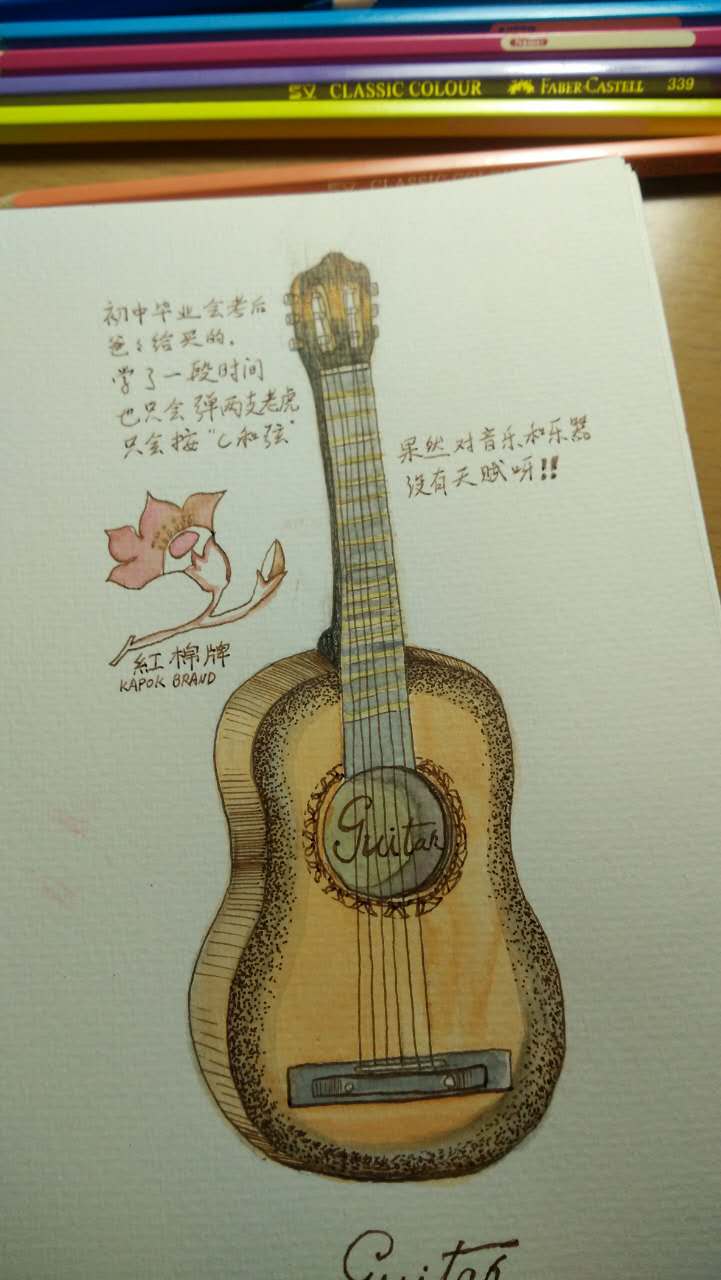 SV CLASSIC COLOUR FABER-CASTELL 339
初中毕业会考后
爸々给买的.
学了一段时间
也只会弹两支老虎
只会按“C和弦”
果然对音乐和乐器
没有天赋呀!!
紅棉牌
KAPOK BRAND
Guitar
Guitar